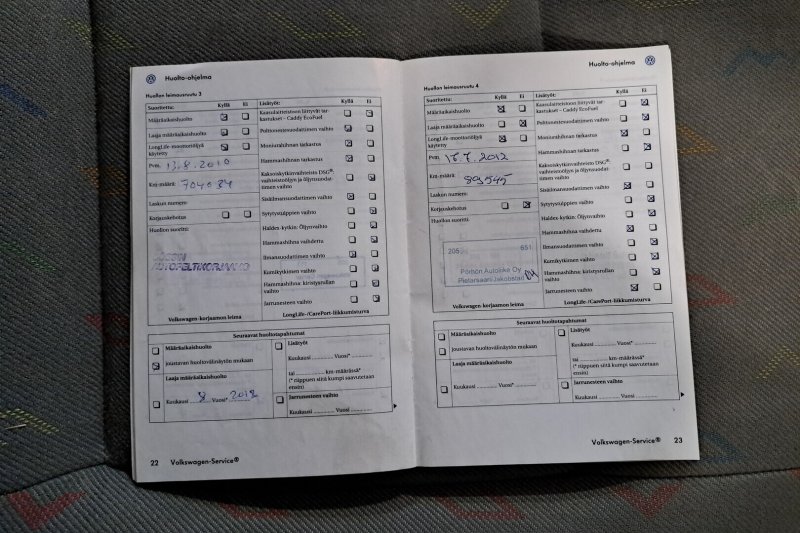 Huolto-ohjelma
Huollon leimausruutu 3
Suoritettu: Kyllä Ei
Määräaikaishuolto
Laaja määräaikaishuolto
LongLife-moottoriöljyä
käytetty
Pvm. 13.8.2010
Km-määrä:
Laskun numero:
Korjauskehotus
Huollon suoritti:
AUTOPELTIKORJAAMO
Volkswagen-korjaamon leima
Lisätyöt: Kyllä Ei
Kaasulaitteistoon liittyvät tar-
kastukset – Caddy EcoFuel
Polttonestesuodattimen vaihto
Moniurahihnan tarkastus
Hammashihnan tarkastus
Kaksoiskytkinvaihteisto DSG®:
vaihteistoöljyn ja öljynsuodat-
timen vaihto
Sisäilmansuodattimen vaihto
Sytytystulppien vaihto
Haldex-kytkin: Öljynvaihto
Hammashihna vaihdettu
Ilmansuodattimen vaihto
Kumikytkimen vaihto
Hammashihna: kiristysrullan
vaihto
Jarrunesteen vaihto
LongLife-/CarePort-liikkumisturva
Seuraavat huoltotapahtumat
Määräaikaishuolto
joustavan huoltovälinäytön mukaan
Laaja määräaikaishuolto
Kuukausi 8 Vuosi* 2012
Lisätyöt
Kuukausi Vuosi*
tai km-määrässä*
(* riippuen siitä kumpi saavutetaan
ensin)
Jarrunesteen vaihto
Kuukausi Vuosi
22 Volkswagen-Service®
Huolto-ohjelma
Huollon leimausruutu 4
Suoritettu: Kyllä Ei
Määräaikaishuolto
Laaja määräaikaishuolto
LongLife-moottoriöljyä
käytetty
Pvm. 18.7.2012
Km-määrä: 89545
Laskun numero:
Korjauskehotus
Huollon suoritti:
205 651
Pörhön Autoliike Oy
Pietarsaari-Jakobstad
Volkswagen-korjaamon leima
Lisätyöt: Kyllä Ei
Kaasulaitteistoon liittyvät tar-
kastukset – Caddy EcoFuel
Polttonestesuodattimen vaihto
Moniurahihnan tarkastus
Hammashihnan tarkastus
Kaksoiskytkinvaihteisto DSG®:
vaihteistoöljyn ja öljynsuodat-
timen vaihto
Sisäilmansuodattimen vaihto
Sytytystulppien vaihto
Haldex-kytkin: Öljynvaihto
Hammashihna vaihdettu
Ilmansuodattimen vaihto
Kumikytkimen vaihto
Hammashihna: kiristysrullan
vaihto
Jarrunesteen vaihto
LongLife-/CarePort-liikkumisturva
Seuraavat huoltotapahtumat
Määräaikaishuolto
joustavan huoltovälinäytön mukaan
Laaja määräaikaishuolto
Kuukausi Vuosi*
Lisätyöt
Kuukausi Vuosi*
tai km-määrässä*
(* riippuen siitä kumpi saavutetaan
ensin)
Jarrunesteen vaihto
Kuukausi Vuosi
Volkswagen-Service® 23